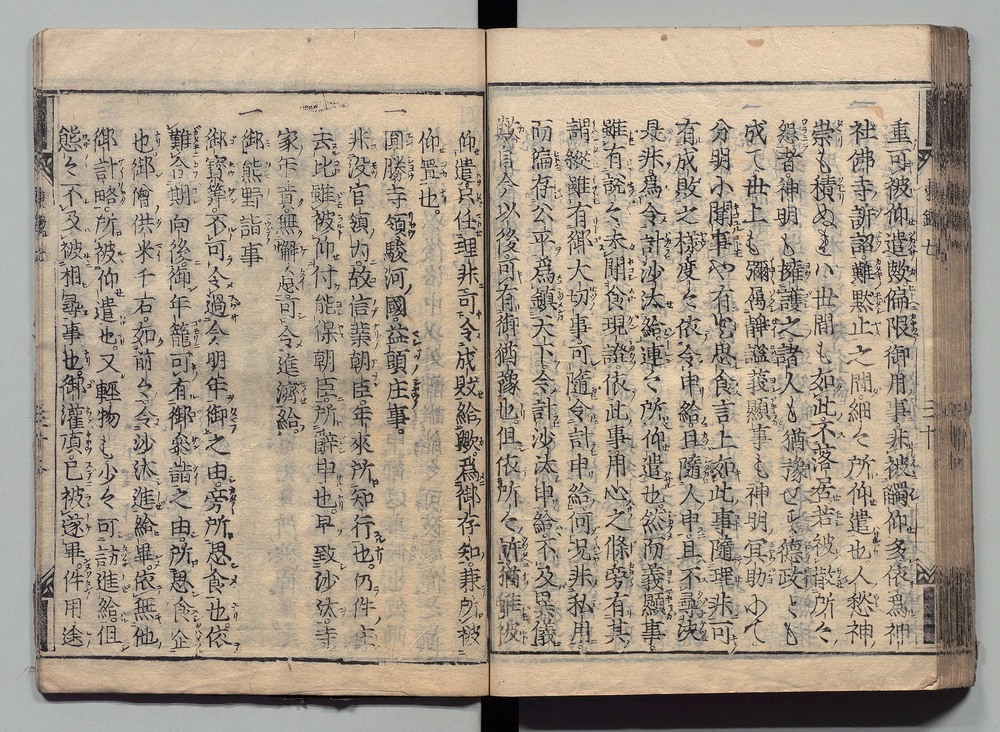 重可被仰遣歟偏限御用事非被觸仰多依爲神
社佛寺訴詔難默止之間細々所仰遣也人愁神
崇も積ぬもハ世間も如此不落居若被散所々
怨者神明も擁護之諸人も猶豫心と德政とも
成て世上も彌偈靜謐義顯事も神明冥助にて
分明小聞事や有と思食言上如此事隨理非可
有成敗之樣度々依令申給且隨人申且不尋決
是非爲令計沙汰給連々所仰遣也然而義顯事
雖有說々未聞食現證依此事用心之條旁有其
謂縱雖有御大切事可隨令計申給何况非私用
而偏存公平爲鎮天下令計沙汰申給不及異儀
歟自今以後可有御猶豫也但依所々訴猶雖被
仰遣兵任理非可令成敗給歟爲御存知兼所被
仰置也
一
圓勝寺領駿河國益頭庄事
非没官領內故信業朝臣年來所知行也仍件庄
去比雖被仰付能保朝臣所辭申也早致沙汰寺
家年貢無懈怠可令進濟給
一
御熊野詣事
御寶算不可令過今明年御之由旁所思食也依
難合期向後御年籠可有御參詣之由所思食企
也御僧供米千石如前々令沙汰進給畢依無他
御計略所被仰遣也又輕物も少々可訪進給但
態々不及被相尋事也御灌頂已被遂畢件用途